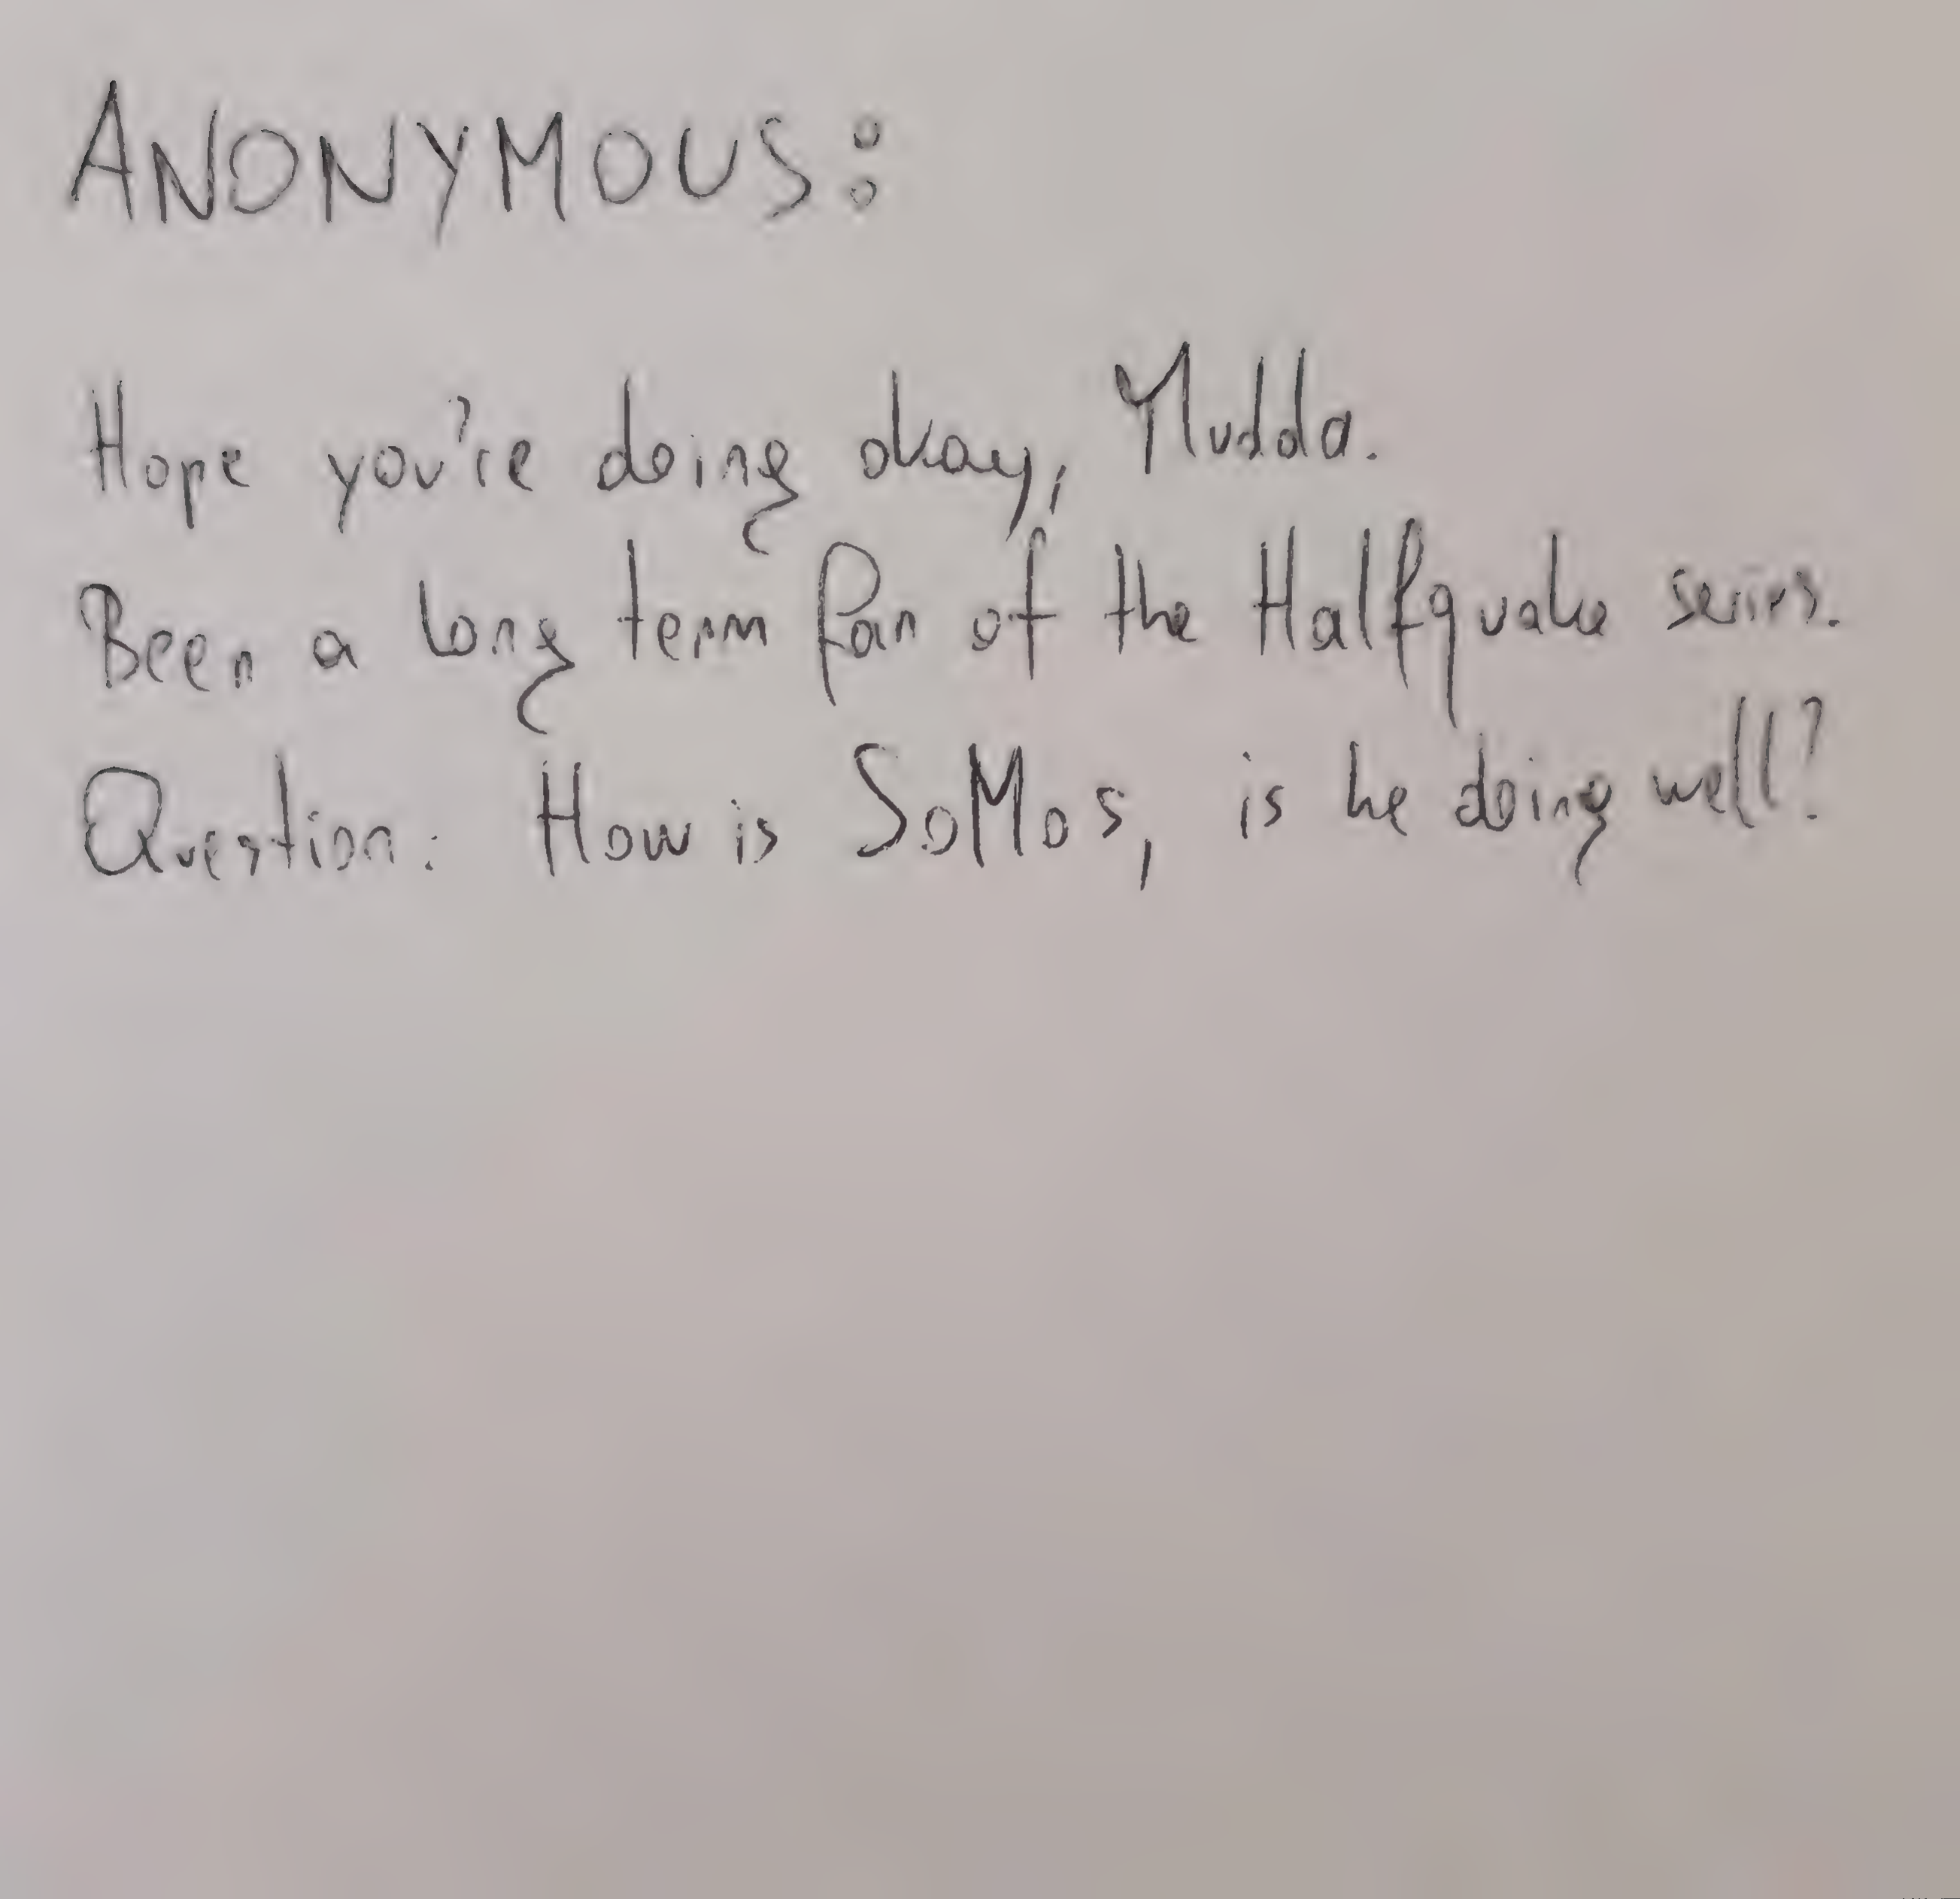 ANONYMOUS:
Hope you're doing okay, Mudda.
Been a long term fan of the Halfquake series.
Question: How is SoMos, is he doing well?